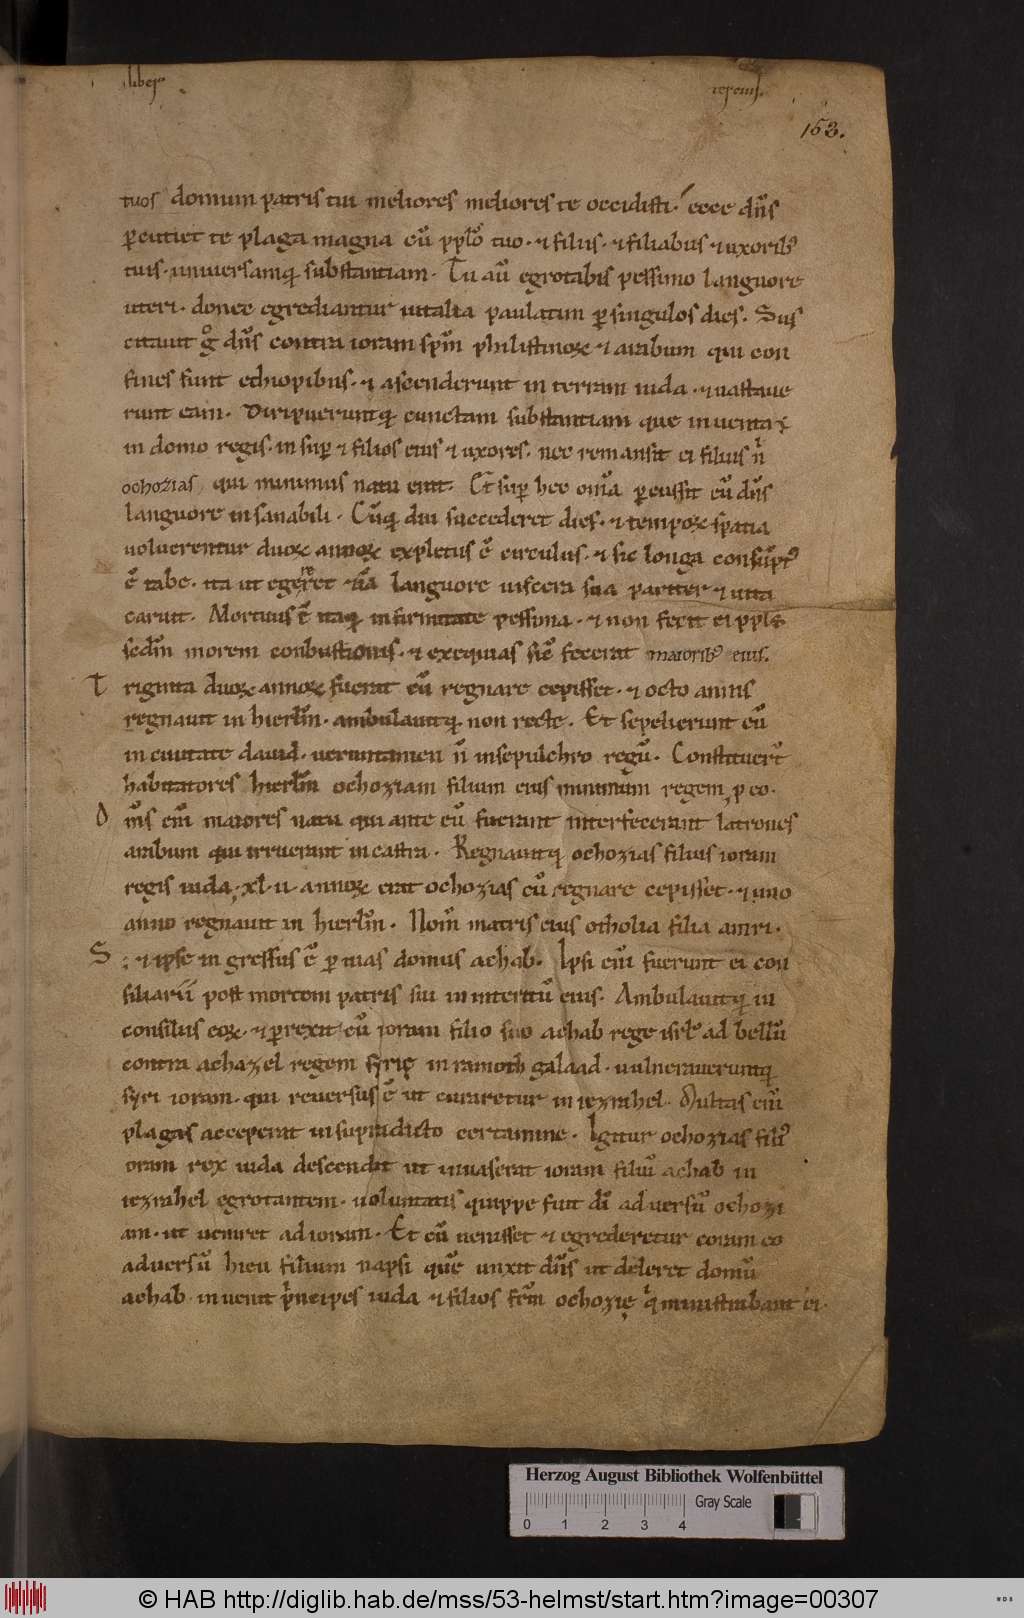 liber
ieremi.
153.
tuos domum patris tui meliores meliores te occidisti. ecce dn̄s
ꝑcutiet te plaga magna cū pp̄lo tuo. ⁊ filiis. ⁊ filiabus ⁊ uxorib;
tuis. uniuersamq; substantiam. Tu aū egrotabis pessimo languore
uteri. donec egrediantur uitalia paulatim ꝑ singulos dies. Sus
citauit gͦ dn̄s contra ioram sp̄m philistinoꝝ ⁊ arabum qui con
fines sunt ethiopibus. ⁊ ascenderunt in terram iuda. ⁊ uastaue
runt eam. Diripueruntq; cunctam substantiam que inuenta ÷
in domo regis. in suꝑ ⁊ filios eius ⁊ uxores. nec remansit ei filius nͥ
ochozias, qui minimus natu erat. Et suꝑ hec om̄a ꝑcussit eū dn̄s
languore insanabili. Cūq; diu succederet dies. ⁊ tempoꝝ spatia
uoluerentur duoꝝ annoꝝ expletus ē circulus. ⁊ sic longa consūpt᷒
ē tabe. ita ut egereret etiā languore uiscera sua pariter ⁊ uita
caruit. Mortuus ē itaq; infirmitate pessima. ⁊ non fecit ei pp̄ls
sedm̄ morem conbustionis. ⁊ exequias sic̄ fecerat maiorib; eius.
T riginta duoꝝ annoꝝ fuerat cū regnare cepisset. ⁊ octo annis
regnauit in hierlm̄. ambulauitq; non recte. Et sepelierunt eū
in ciuitate dauid. ueruntamen n̄ in sepulchro regū. Constituer̄t
habitatores hierlm̄ ochoziam filium eius minimum regem, p eo.
O m̄s eni᷒ maiores natu qui ante eū fuerant interfecerant latrones
arabum qui irruerant in castra. Regnauitq; ochozias filius ioram
regis iuda, xl. ii. annoꝝ erat ochozias cū regnare cepisset. ⁊ uno
anno regnauit in hierlm̄. Nom̄ matris eius otholia filia amri.
S ; ⁊ ipse ingressus ē ꝑ uias domus achab. Ipsi eni᷒ fuerunt ei con
siliarii post mortem patris sui in interitū eius. Ambulauitq; in
consiliis eoꝝ. ⁊ ꝑrexit cū ioram filio suo achab rege isrl̄ ad bellū
contra achazel regem syrię in ramoth galaad. uulneraueruntq;
syri ioram. qui reuersus ē ut curaretur in iezrahel. Multas eni᷒
plagas acceperat in supradicto certamine. Igitur ochozias fili᷒
oram rex iuda descendit ut uiuaserat ioram filiū achab in
iezrahel egrotantem. uoluntatis quippe fuit dī aduersū ochozi
am. ut ueniret ad ioram. Et cū uenisset ⁊ egrederetur coram eo
aduersū hieu filium napsi quē unxit dn̄s ut deleret domū
achab. inuenit pͥncipes iuda ⁊ filios fr̄m ochozię qͥ ministrabant ei.
Herzog August Bibliothek Wolfenbüttel
Gray Scale
0 1 2 3 4
© HAB http://diglib.hab.de/mss/53-helmst/start.htm?image=00307